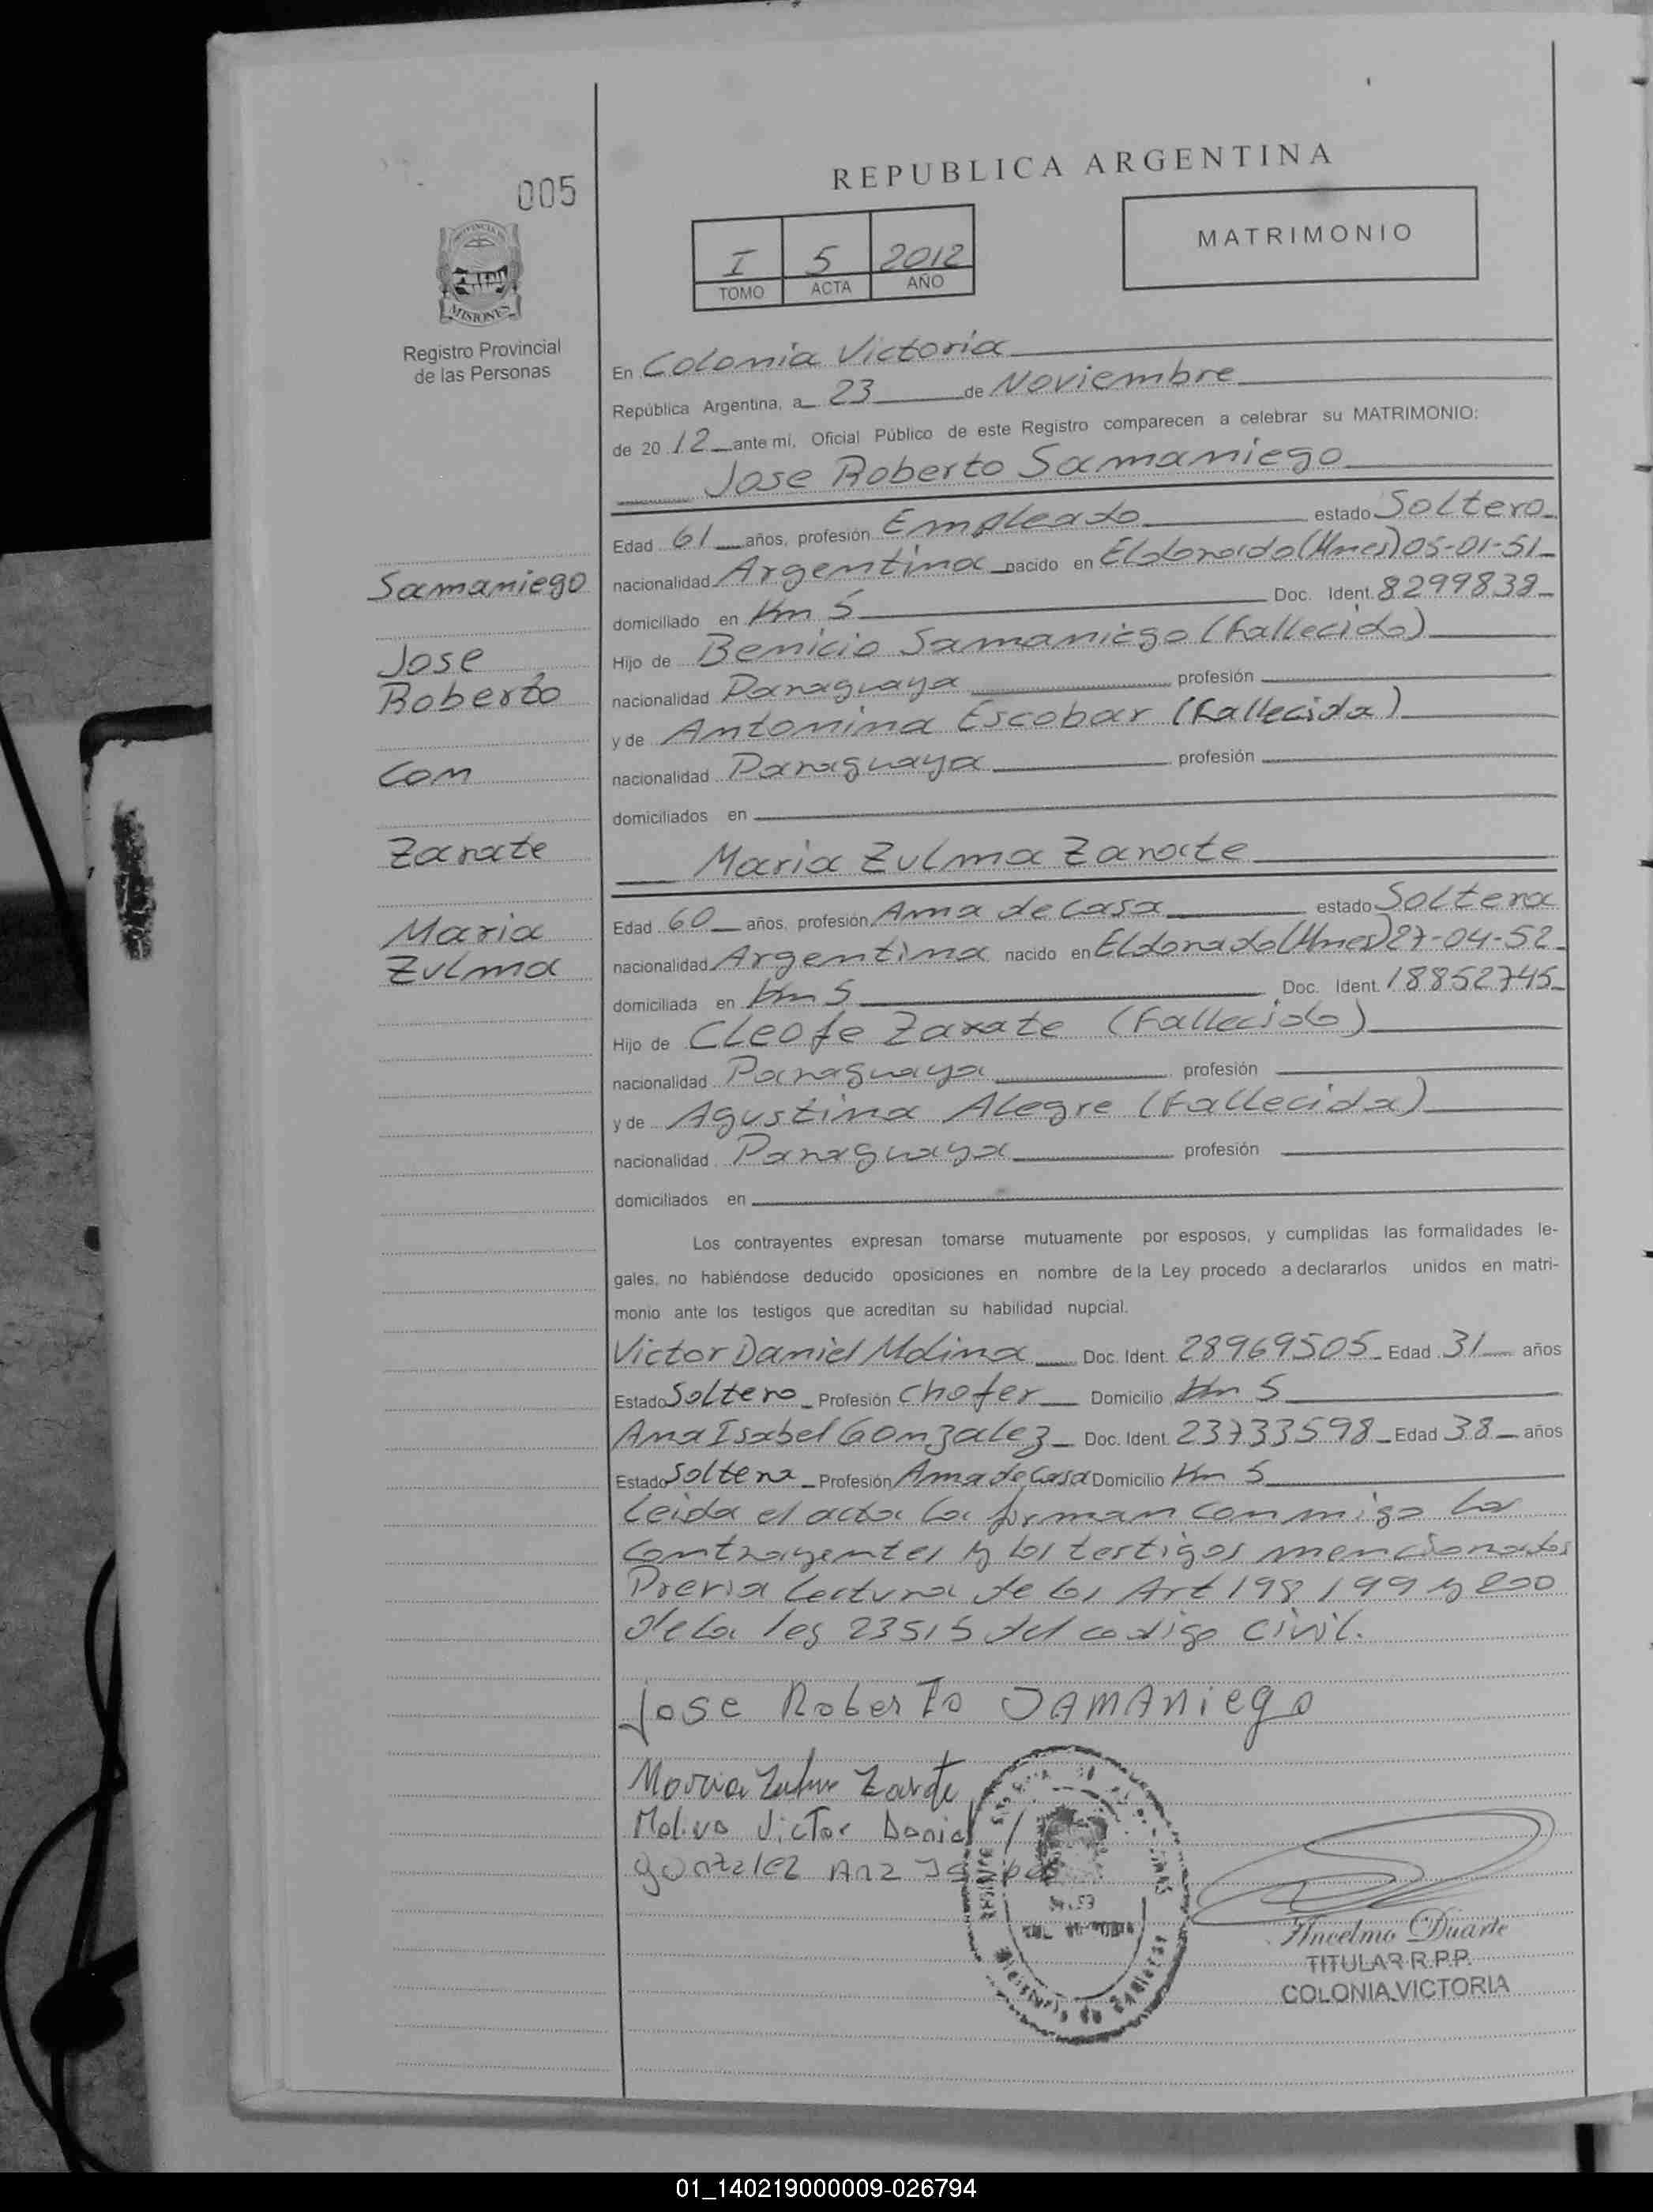 005
REPUBLICA ARGENTINA
MATRIMONIO
I 5 2012
TOMO ACTA AÑO
PROVINCIA DE
MISIONES
Registro Provincial
de las Personas
En Colonia Victoria
República Argentina, a 23 de Noviembre
de 20 12 ante mi, Oficial Público de este Registro comparecen a celebrar su MATRIMONIO:
Jose Roberto Samaniego
Edad 61 años, profesión Empleado estado Soltero
nacionalidad Argentina nacido en Eldorado (Mnes) 05-01-51
domiciliado en Km 5 Doc. Ident. 8299838
Hijo de Benicio Samaniego (Fallecido)
nacionalidad Paraguaya profesión
y de Antonina Escobar (Fallecida)
nacionalidad Paraguaya profesión
domiciliados en
Samaniego
Jose
Roberto
Con
Zarate
Maria
Zulma
Maria Zulma Zarate
Edad 60 años, profesión Ama de casa estado Soltera
nacionalidad Argentina nacido en Eldorado (Mnes) 27-04-52
domiciliada en Km 5 Doc. Ident. 18852745
Hijo de Cleofe Zarate (Fallecido)
nacionalidad Paraguaya profesión
y de Agustina Alegre (Fallecida)
nacionalidad Paraguaya profesión
domiciliados en
Los contrayentes expresan tomarse mutuamente por esposos, y cumplidas las formalidades le-
gales, no habiéndose deducido oposiciones en nombre de la Ley procedo a declararlos unidos en matri-
monio ante los testigos que acreditan su habilidad nupcial.
Victor Daniel Molina Doc. Ident. 28969505 Edad 31 años
Estado Soltero Profesión Chofer Domicilio Km 5
Ana Isabel Gonzalez Doc. Ident. 23733598 Edad 38 años
Estado Soltera Profesión Ama de Casa Domicilio Km 5
Leida el acta la firman conmigo los
contrayentes y los testigos mencionados
Previa lectura de los Art 198 199 y 200
de la ley 23515 del codigo civil.
Jose Roberto SAMANiego
Maria Zulma Zarate
Molina Victor Daniel
gonzalez Ana
Ancelmo Duarte
TITULAR R.P.P.
COLONIA VICTORIA
01_140219000009-026794